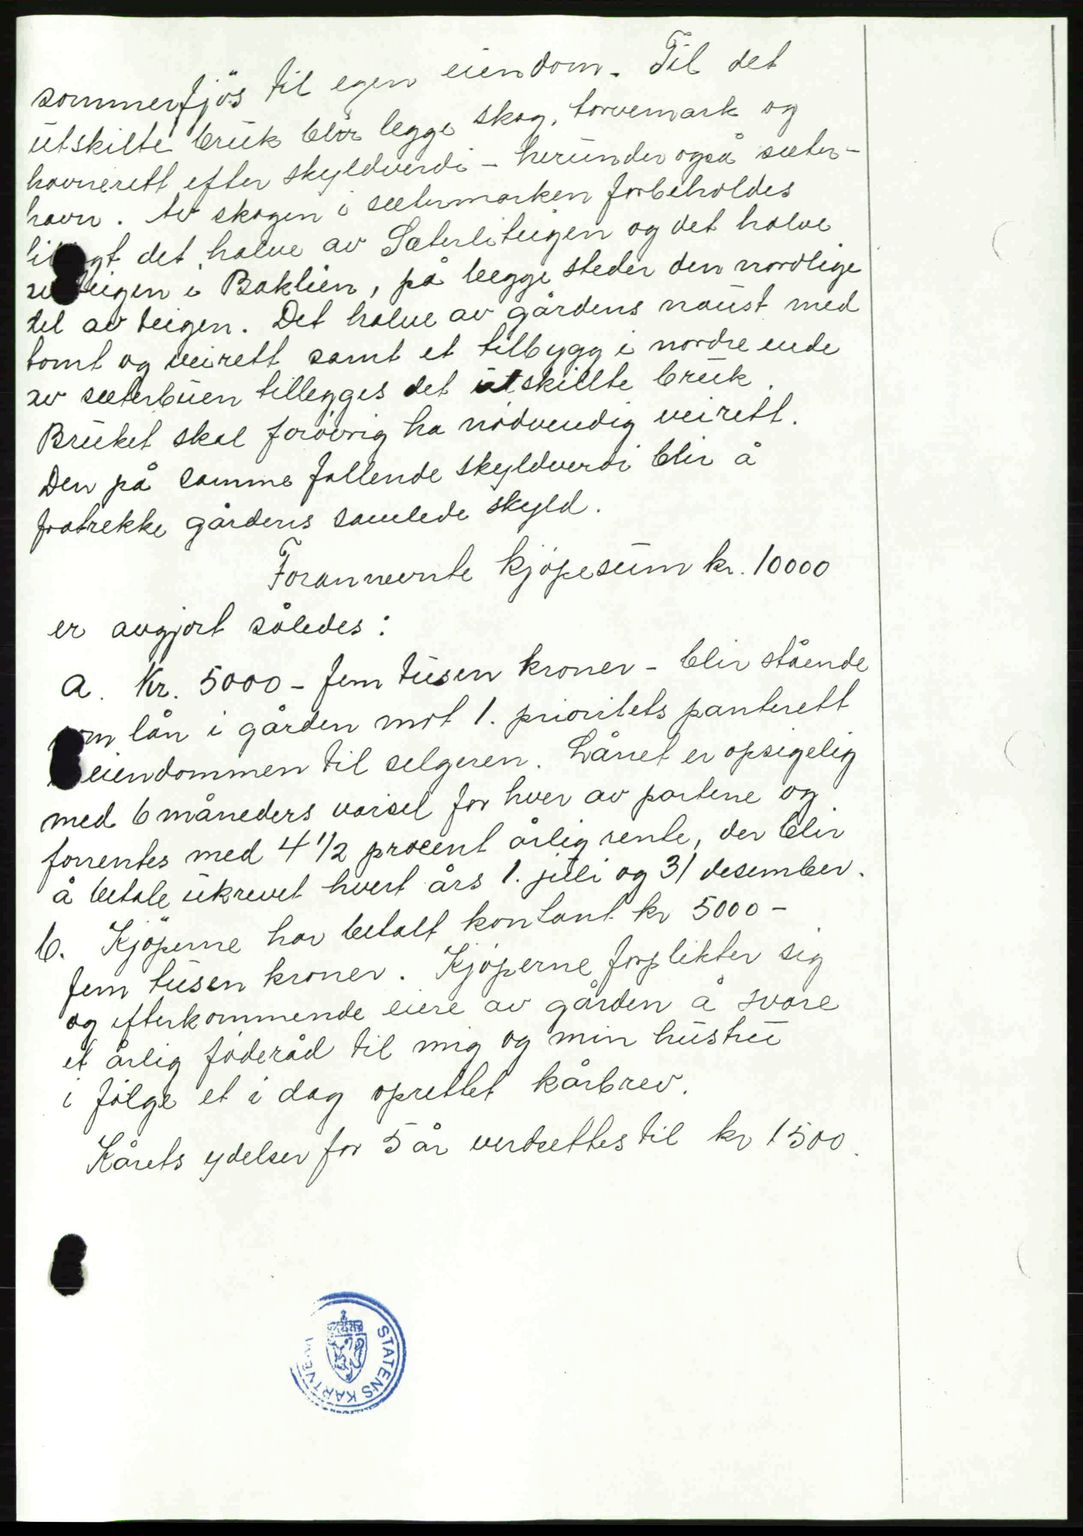 sommerfjös til egen eiendom. Til det
utskilte bruk blir legge skog, torvemark og
havnerett efter skyldverdi - herunder også sæter-
havn. Av skogen i sætermarken forbeholdes
det halve av Sæterliteigen og det halve
i Baklien, på begge steder den nordlige
del av teigen. Det halve av gårdens naust med
tomt og veirett samt et tilbygg i nordre ende
av sæterbuen tillegges det utskillte bruk.
Bruket skal forøvrig ha nødvendig veirett.
Den på samme fallende skyldverdi blir å
fratrekke gårdens samlede skyld.
Forannevnte kjøpesum kr. 10000
er avgjort således:
a. Kr. 5000 - fem tusen kroner - blir stående
som lån i gården mot 1. prioritets panterett
eiendommen til selgeren. Lånet er opsigelig
med 6 måneders varsel for hver av partene og
forrentes med 4 1/2 procent årlig rente, der blir
å betale ukrevet hvert års 1. juli og 31 desember.
b. Kjøperne har betalt kontant kr 5000 -
fem tusen kroner. Kjøperne forplikter sig
og efterkommende eiere av gården å svare
et årlig føderåd til mig og min hustru
i følge et i dag oprettet kårbrev.
Kårets ydelser for 5 år verdsettes til kr 1500.
STATENS KARTVE